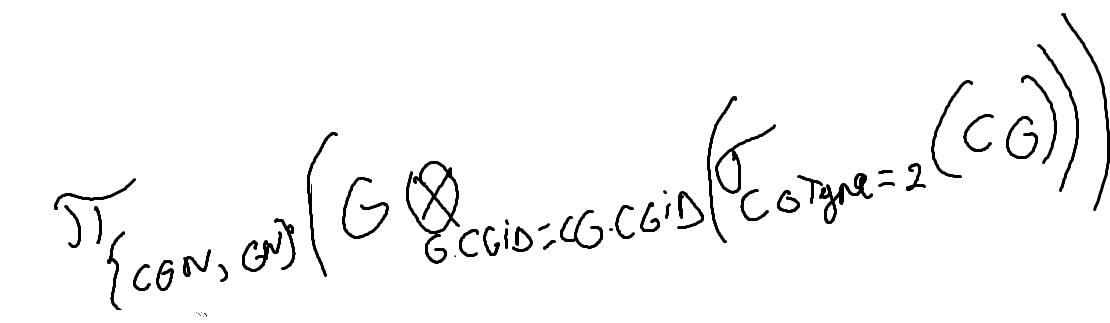 π_{CGN, GN} (G ⊗_{G.CGiD=CG.CGiD} (σ_{CGType=2} (CG)))